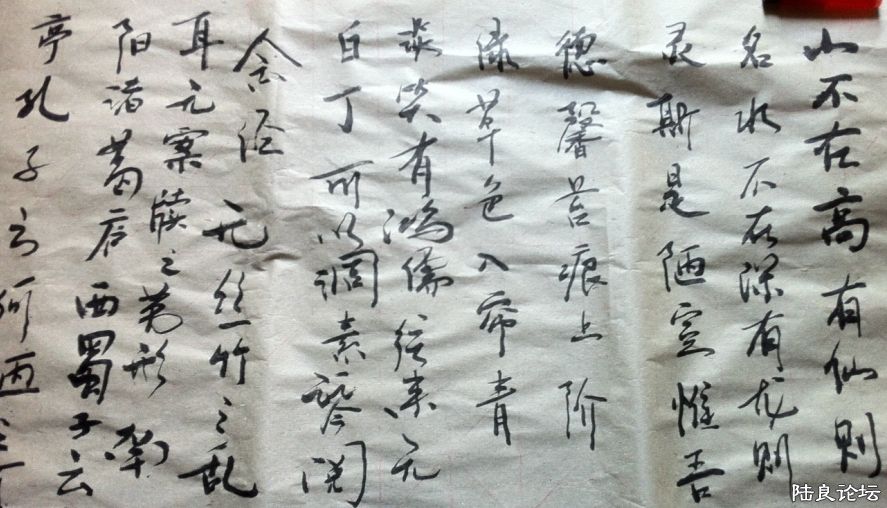 山不在高有仙则
名水不在深有龙则
灵斯是陋室惟吾
德馨苔痕上阶
绿草色入帘青
谈笑有鸿儒往来无
白丁可以调素琴阅
金经无丝竹之乱
耳无案牍之劳形南
阳诸葛庐西蜀子云
亭孔子云何陋之
陆良论坛